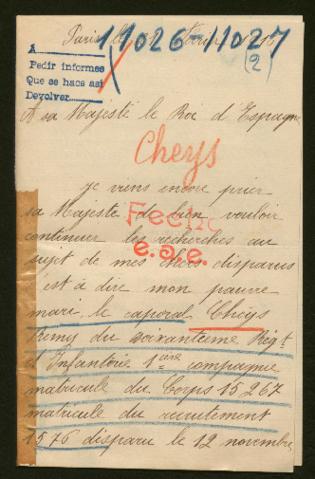 Paris le
11026-11027
(2)
A
Pedir informes
Que se haga así
Devolver
A sa Majesté le Roi d'Espagne
Cheys
je viens encore prier
sa Majesté de bien vouloir
Fecho
continuer les recherches au
e.s.e.
sujet de mes chers disparus
c'est à dire mon pauvre
mari le caporal Cheys
Remy du soixantième Régt
d'Infanterie 1ière compagnie
matricule du Corps 15267
matricule du recrutement
1576 disparu le 12 novembre